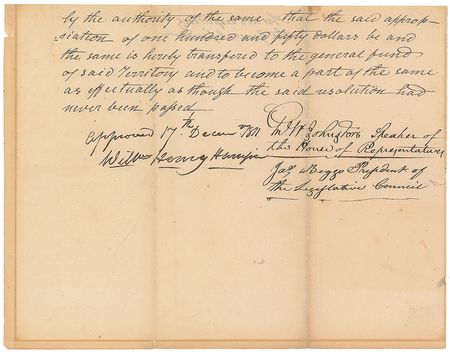 by the authority of the same that the said approp-
riation of one hundred and fifty dollars be and
the same is hereby transfered to the general fund
of said Territory and to become a part of the same
as effectually as though the said resolution had
never been passed
Approved 17th Decem 1811
Willm Henry Harrison
Speaker of
the House of Representatives
Jas Beggs President of
the Legislative Council